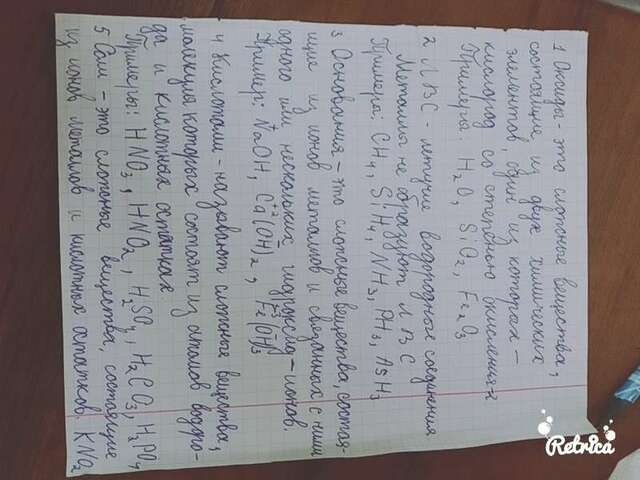 1 Оксиды - это сложные вещества,
состоящие из двух химических
элементов, один из которых -
кислород со степенью окисления -2
Примеры: H2O, SiO2, Fe2O3
2 ЛВС - летучие водородные соединения
Металлы не образуют ЛВС
Примеры: CH4, SiH4, NH3, PH3, AsH3
3 Основания - это сложные вещества, состоя-
щие из ионов металлов и связанных с ними
одного или нескольких гидроксид-ионов.
Пример: NaOH, Ca(OH)2, Fe(OH)3
4 Кислотами - называют сложные вещества,
молекулы которых состоят из атомов водро-
да и кислотных остатков.
Примеры: HNO3, HNO2, H2SO4, H2CO3, H3PO4
5 Соли - это сложные вещества, состоящие
из ионов металлов и кислотных остатков. KNO2
Retrica